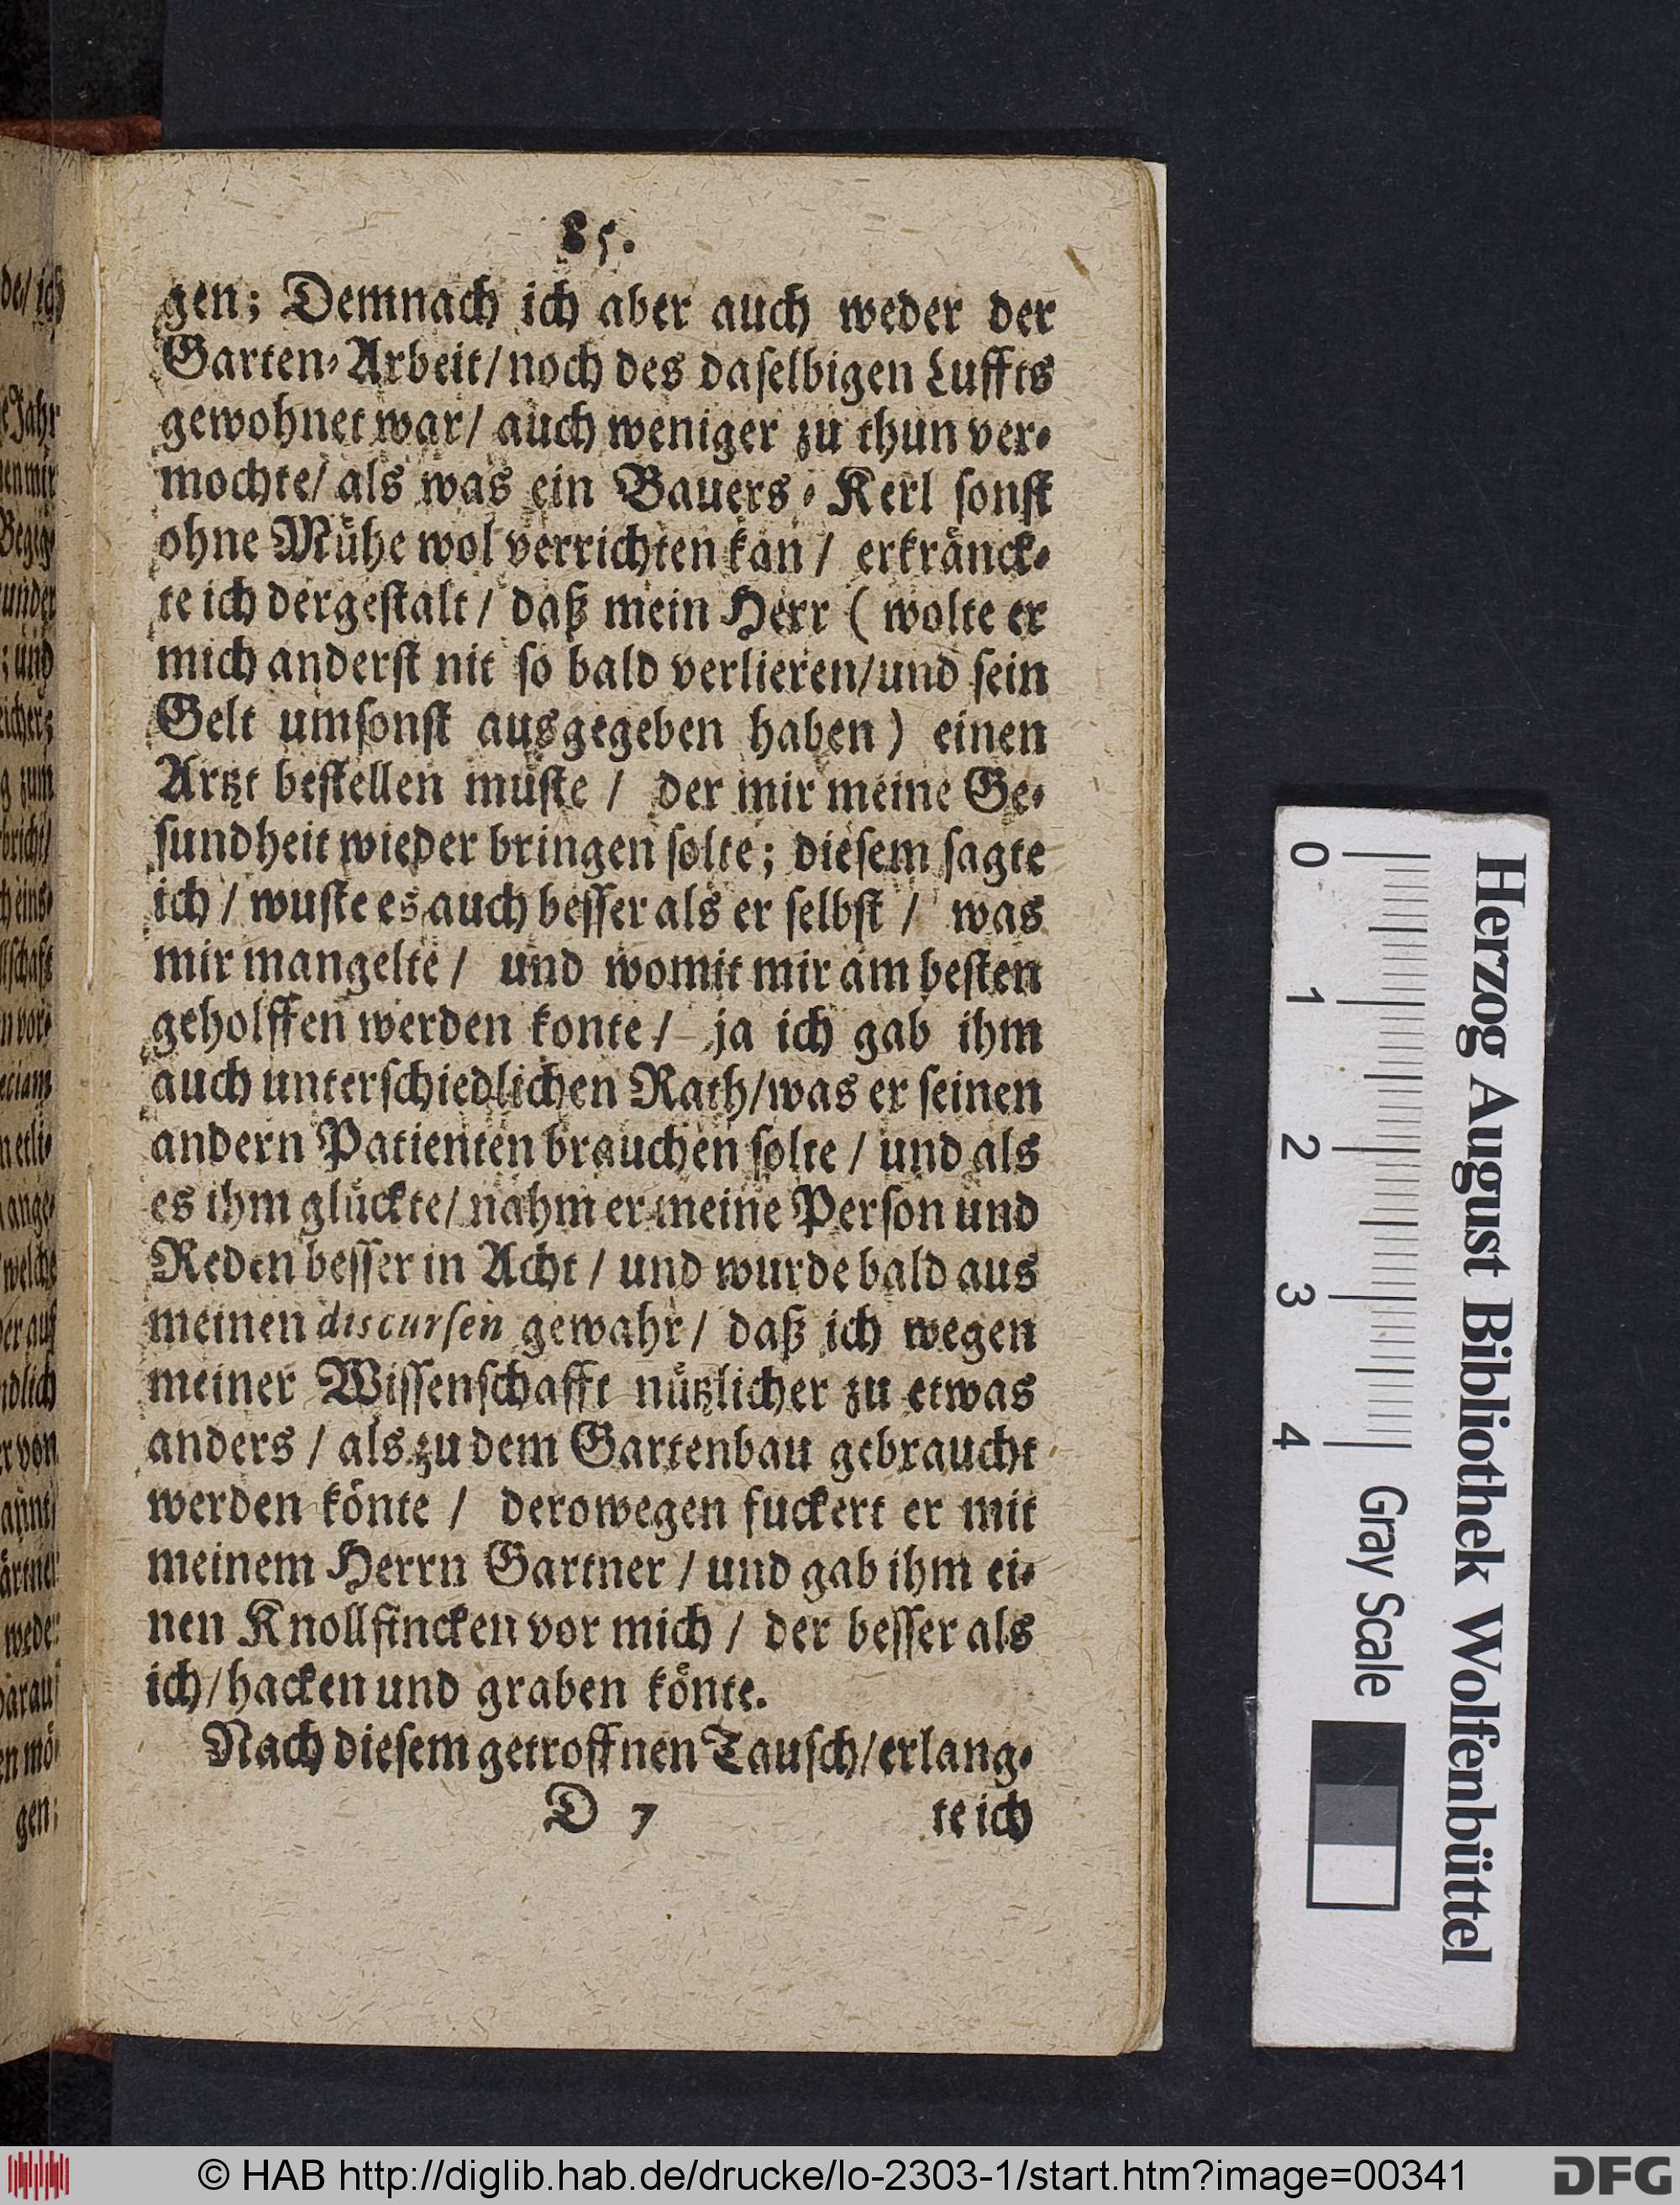 85.
gen; Demnach ich aber auch weder der
Garten-Arbeit/noch des daſelbigen Luffts
gewohnet war/ auch weniger zu thun ver-
mochte/ als was ein Bauers-Kerl ſonſt
ohne Mühe wol verrichten kan / erkränck-
te ich dergeſtalt / daß mein Herr ( wolte er
mich anderſt nit ſo bald verlieren/und ſein
Gelt umſonſt ausgegeben haben) einen
Artzt beſtellen muſte / der mir meine Ge-
ſundheit wieder bringen ſolte; dieſem ſagte
ich / wuſte es auch beſſer als er ſelbſt / was
mir mangelte / und womit mir am beſten
geholffen werden konte / ja ich gab ihm
auch unterſchiedlichen Rath/was er ſeinen
andern Patienten brauchen ſolte / und als
es ihm glückte/ nahm er meine Perſon und
Reden beſſer in Acht / und wurde bald aus
meinen discurſen gewahr / daß ich wegen
meiner Wiſſenſchafft nützlicher zu etwas
anders / als zu dem Gartenbau gebraucht
werden könte / derowegen fuckert er mit
meinem Herrn Gartner / und gab ihm ei-
nen Knollfincken vor mich / der beſſer als
ich/hacken und graben könte.
Nach dieſem getroffnen Tauſch/erlang-
D 7 te ich
de/ ich
Jahr
und
zum
welche
von
gen;
Herzog August Bibliothek Wolfenbüttel
0 1 2 3 4 Gray Scale
© HAB http://diglib.hab.de/drucke/lo-2303-1/start.htm?image=00341
DFG